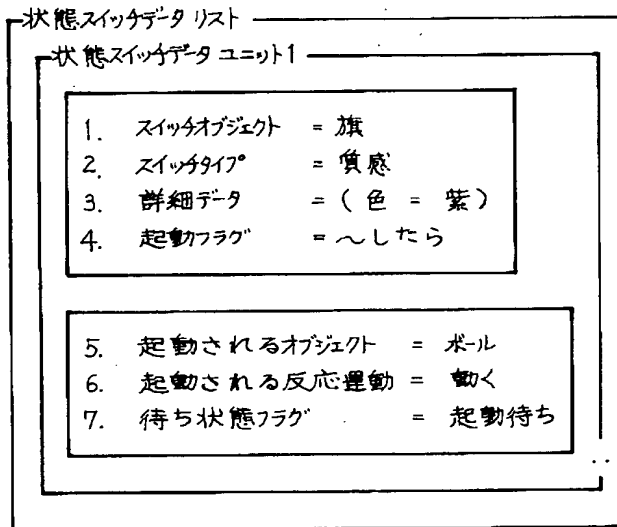 状態スイッチデータリスト
状態スイッチデータユニット1
1. スイッチオブジェクト = 旗
2. スイッチタイプ = 質感
3. 詳細データ = ( 色 = 紫 )
4. 起動フラグ = 〜したら
5. 起動されるオブジェクト = ボール
6. 起動される反応運動 = 動く
7. 待ち状態フラグ = 起動待ち